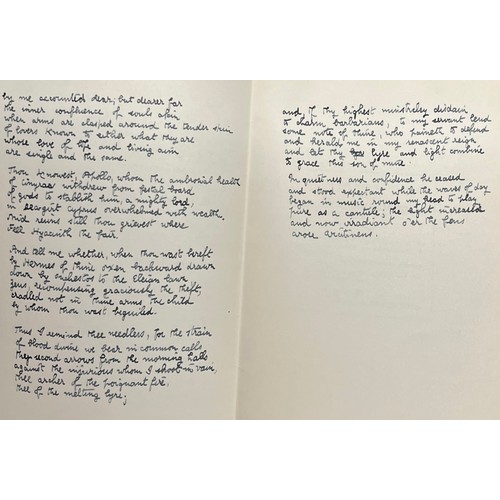 by me accounted dear; but dearer far
the inner confluence of souls akin
when arms are clasped around the tender skin
of lovers known to either what they are
whose love of life and living aim
are single and the same.
Thou knowest, Apollo, whom the ambrosial health
of Cinyras withdrew from festal board
of gods to stablish him, a mighty lord,
in seagirt Cyprus overwhelmed with wealth,
And reins still thou grievest where
fell Hyacinth the fair.
And tell me whether, when thou wast bereft
by Hermes of thine oxen backward drawn
down by Onchestos to the Eleian lawn
Zeus, recompensing graciously the theft,
cradled not in thine arms the child
by whom thou wast beguiled.
Thus I remind thee needless, for the strain
of blood divine we bear in common calls
thy second arrows from the morning halls
against the injurious whom I shoot in vain,
thee archer of the poignant fire,
thee of the melting lyre;
and, if thy highest minstrelsy disdain
to charm barbarians, to my servant lend
some note of thine, who paineth to defend
and herald me in my renascent reign
and let thy lyre and light combine
to grace this son of mine.
In quietness and confidence he ceased
and stood expectant while the waves of day
began in music round my head to play
pure as a canticle; the light increased
and now irradiant o'er the fens
arose